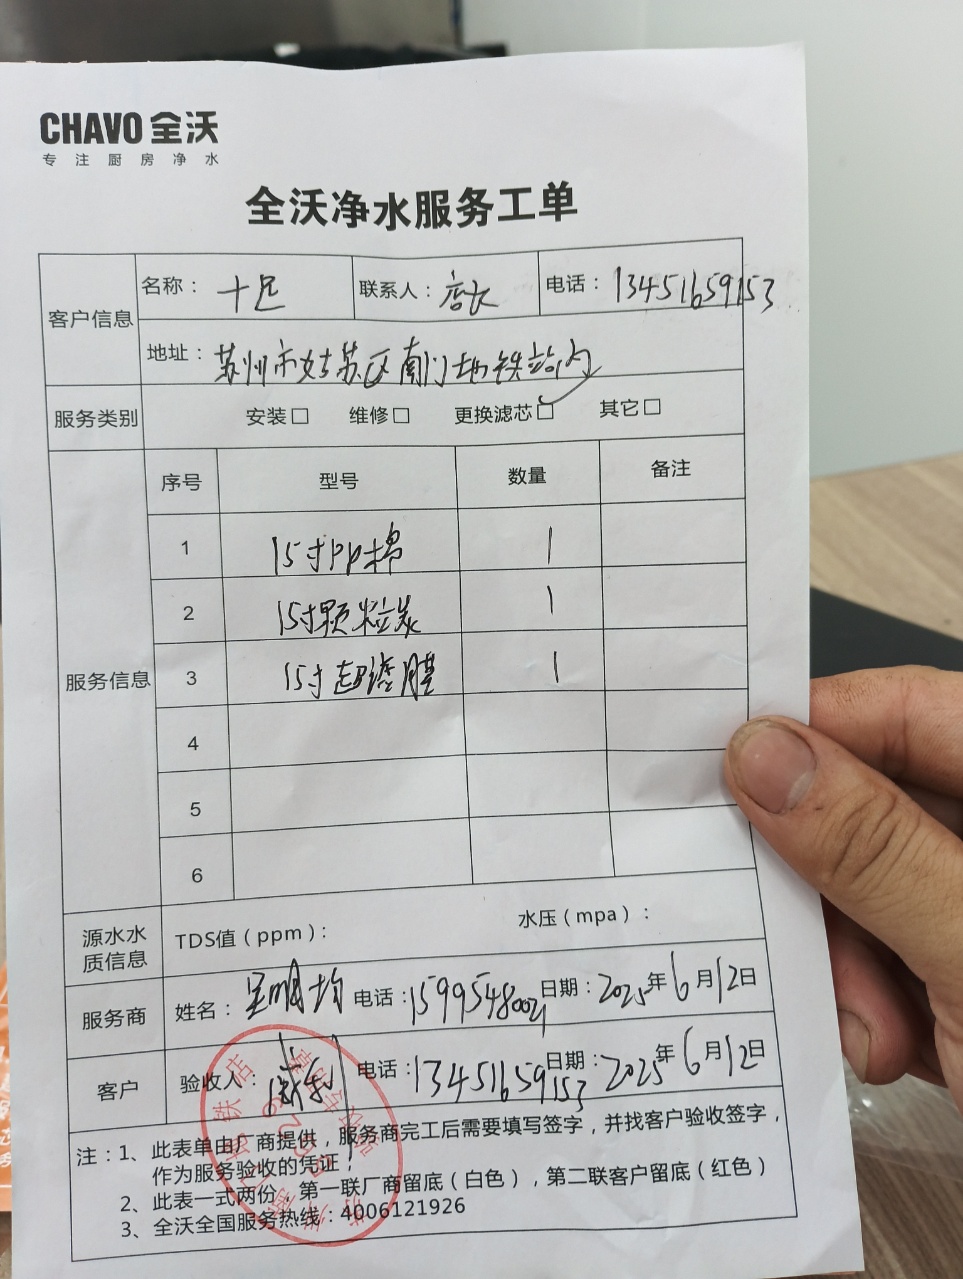 CHAVO 全沃
专注厨房净水
全沃净水服务工单
客户信息 名称： 十足 联系人： 店长 电话： 13451659153
地址： 苏州市姑苏区南门地铁站内
服务类别 安装□ 维修□ 更换滤芯□ 其它□
服务信息 序号 型号 数量 备注
1 15寸PP棉 1
2 15寸颗粒炭 1
3 15寸超滤膜 1
4
5
6
源水水质信息 TDS值（ppm）： 水压（mpa）：
服务商 姓名： 电话：15995480021 日期：2025年6月12日
客户 验收人： 电话：13451659153 日期：2025年6月12日
注：1、此表单由厂商提供，服务商完工后需要填写签字，并找客户验收签字，
作为服务验收的凭证；
2、此表一式两份，第一联厂商留底（白色），第二联客户留底（红色）
3、全沃全国服务热线：4006121926